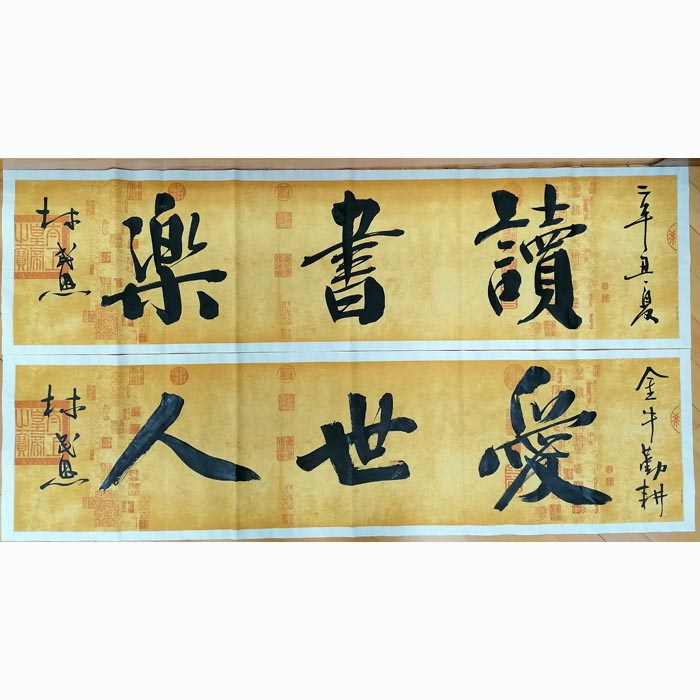 辛丑夏
讀書樂
林
金牛勤耕
愛世人
林